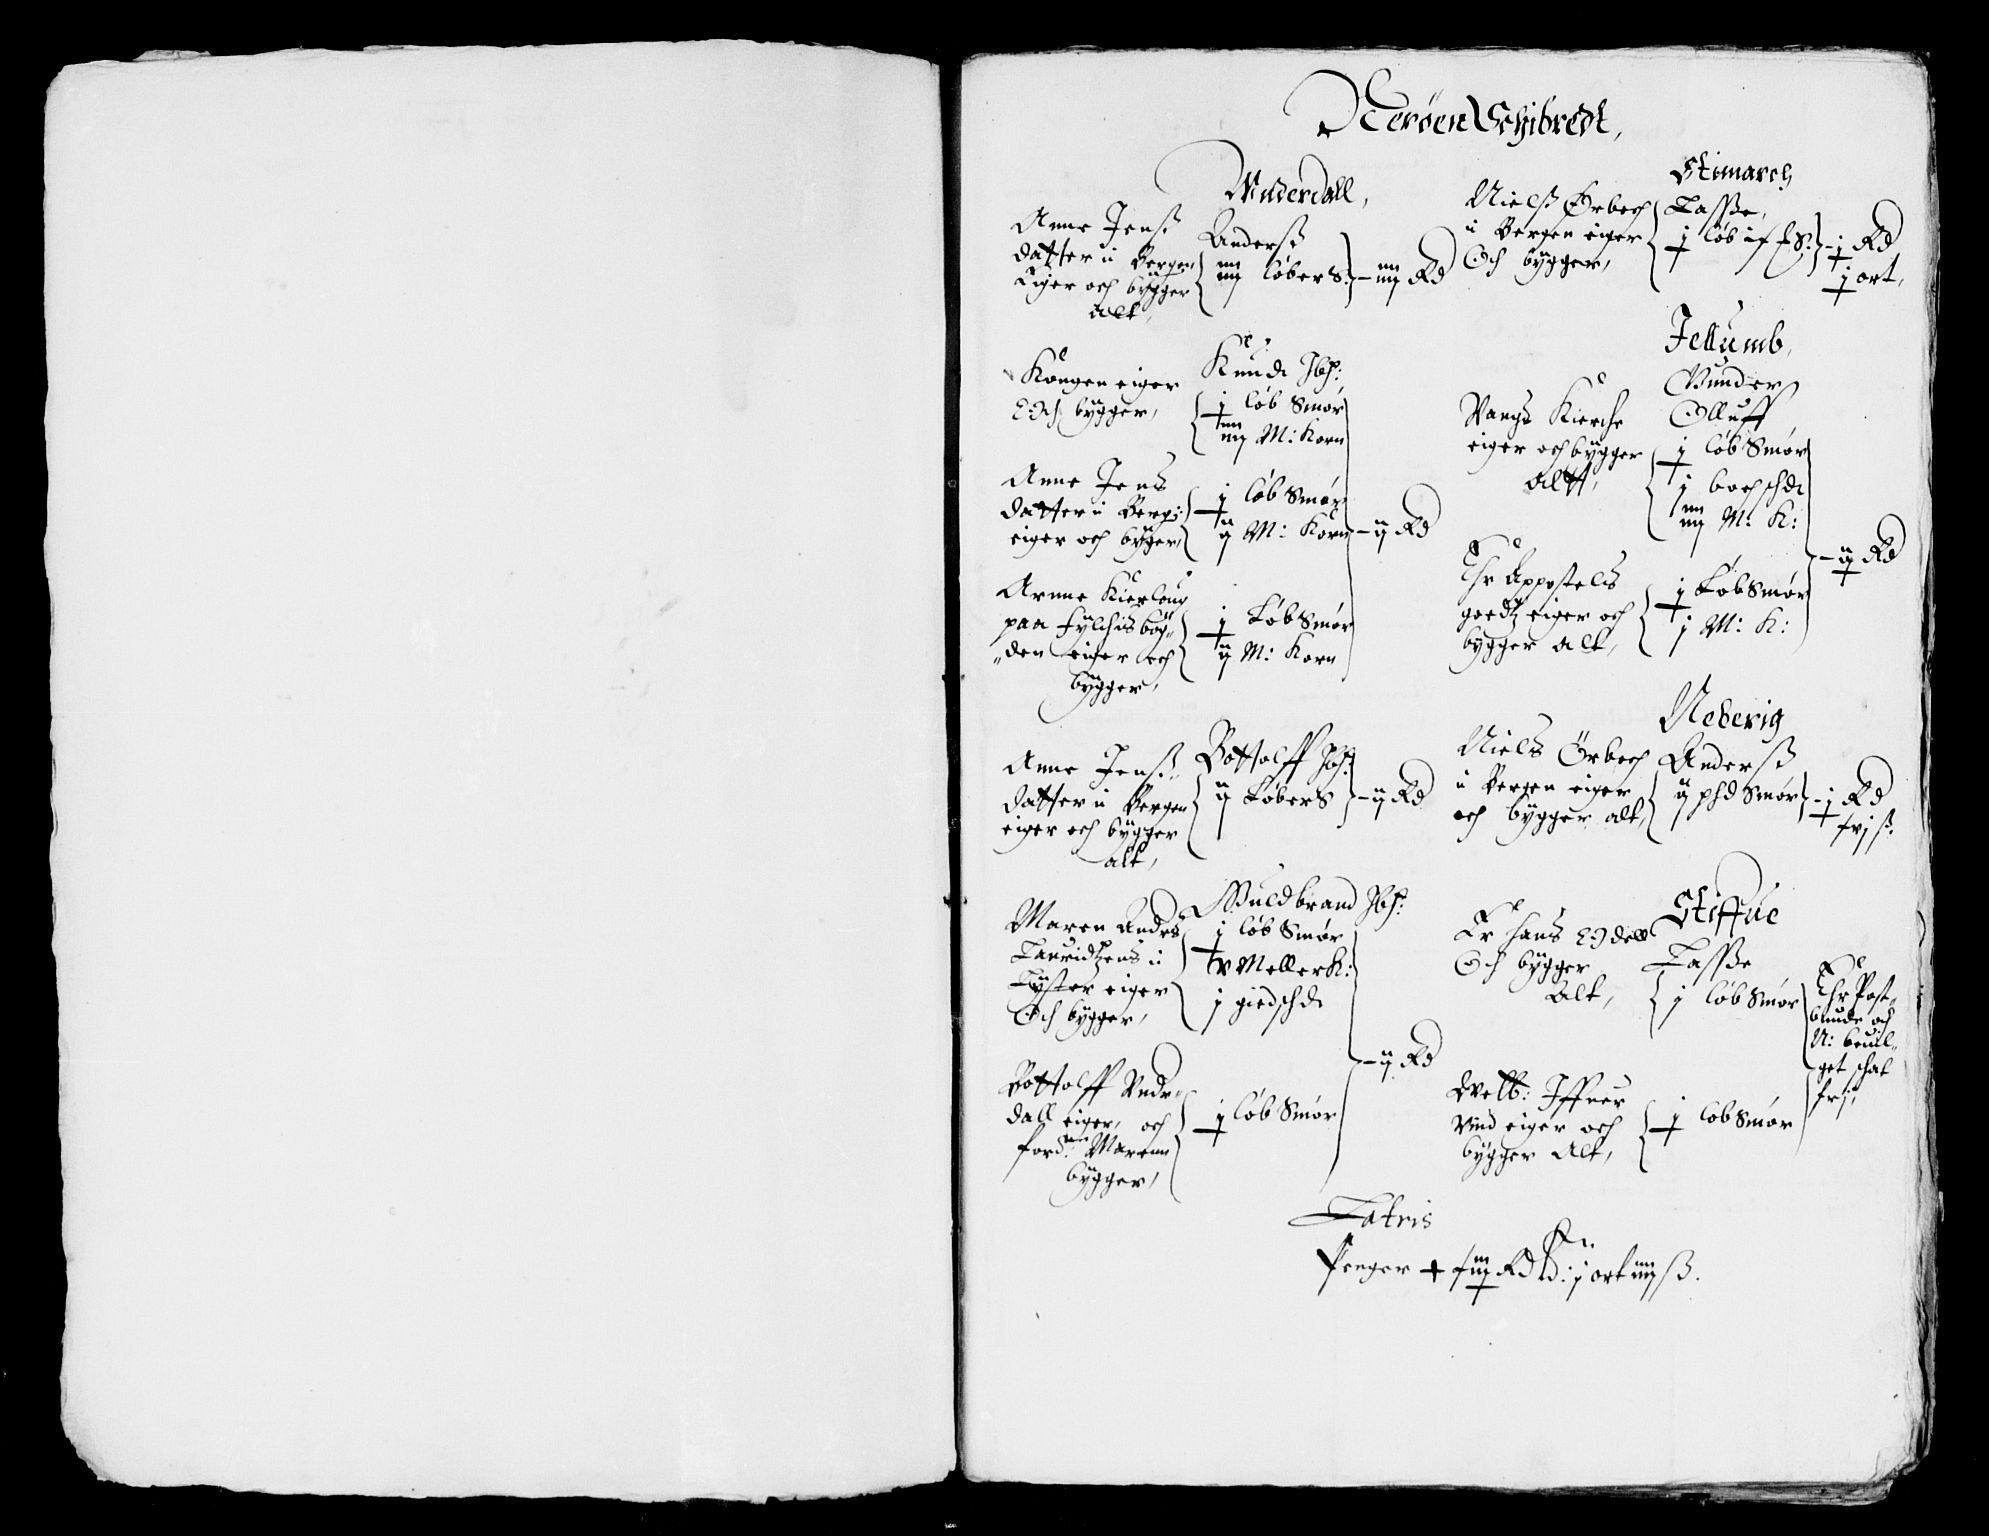 Nerøen Schibrede,
Vnderdall,
Anne Jenß
datter i Bergen
Eiger och bygger
alt,
Anderß
iiij løber S:
- iiij Rd
Kongen eiger
Och bygger,
Knud Ibß:
j løb Smør
iiij M: Korn
Anne Jens
datter i Berg:
eiger och byger,
j løb Smør
ij M: Korn
- ij Rd
Anne
paa
den eiger och
bygger,
j Løb Smør
ij M: Korn
Anne Jenß
datter i Bergen
eiger och bygger
alt,
Bottolff Ibß:
ij Løber S
- ij Rd
Maren Andrs
Lauridtzens i
Lyster eiger
Och bygger,
Guldbrand Ibß:
j løb Smør
v Meller K:
j giedschd
Bottolff Vndr
dall eiger, och
ford: Marenn
bygger,
j løb Smør
- ij Rd
Stimarch
Nielß Ørbech
i Bergen eiger
Och bygger,
Lasße,
j løb
- j Rd
j ort,
Jellumb,
Vangs Kierche
eiger och bygger
altt,
Vunder
Olluff
j løb Smør
j bochschd
iiij M: K:
Chr Appostels
goedtz eiger och
bygger alt,
j Løb Smør
j M: K:
- ij Rd
Nederig
Niels Ørbech
i Bergen eiger
och bygger alt,
Anderß
ij phd Smør
- j Rd
xvj ß:
Stiffue
Er Hans Odell
Och bygger
Alt,
Lasße
j løb Smør
Ehr Post
bunde och
N: beuil
get schat
frj,
Welb: Iffuer
Vind eiger och
bygger Alt,
j løb Smør
Latris
Penger + xiiij Rd: j ort iiij ß.